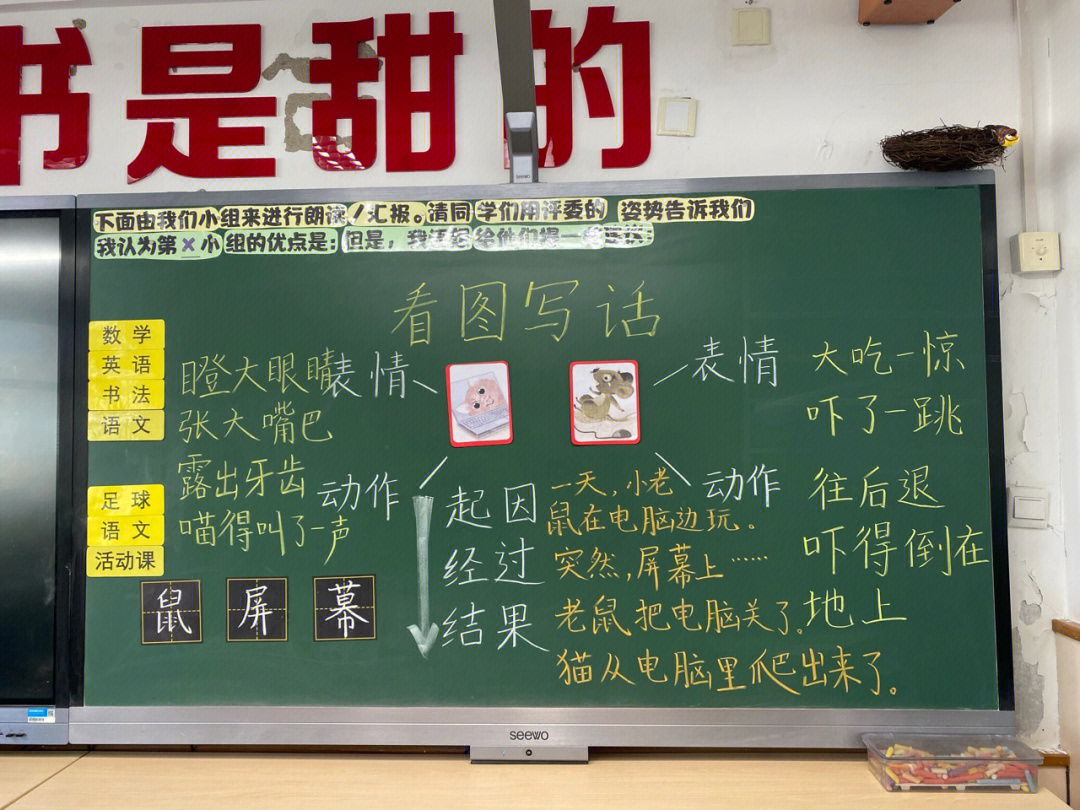 书是甜的
seewo
下面由我们小组来进行朗读/汇报。请同学们用评委的姿势告诉我们
我认为第×小组的优点是：但是，我
看图写话
数学
英语
书法
语文
足球
语文
活动课
瞪大眼睛
张大嘴巴
露出牙齿
喵得叫了一声
表情
动作
鼠
屏
幕
起因
经过
结果
一天，小老
鼠在电脑边玩。
突然，屏幕上……
老鼠把电脑关了。
猫从电脑里爬出来了。
表情
动作
大吃一惊
吓了一跳
往后退
吓得倒在
地上
seewo